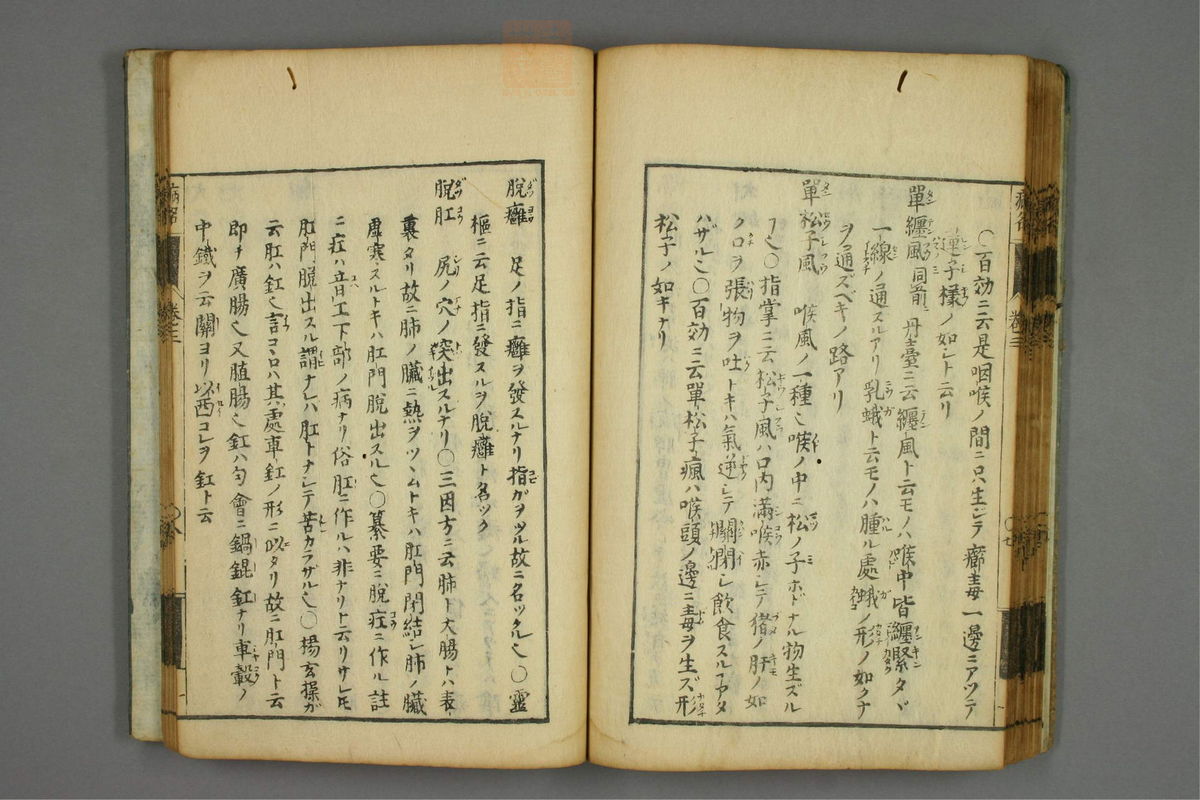 〇百効ニ云是咽喉ノ間ニ只生シテ癤毒一邊ニアツテ
蓮子樣ノ如シト云リ
單纏風 同前 丹臺ニ云纏風ト云モノハ喉中皆纏緊タヾ
一線ノ通スルアリ乳蛾ト云モノハ腫ル處蛾ノ形ノ如クナ
ヲ通ズベキノ路アリ
單松子風 喉風ノ一種也喉ノ中ニ松ノ子ホドナル物生ズル
〇指掌ニ云松子風ハ口内滿喉赤シテ猪ノ肝ノ如
ク口ヲ張物ヲ吐トキハ氣逆シテ關閉シ飲食スル
ハザル也〇百効ニ云單松子瘋ハ喉頭ノ邊ニ毒ヲ生ズ形
松子ノ如キナリ
病名 卷之三
脫癰 足ノ指ニ癰ヲ發スルナリ指ガヲツル故ニ名ツクル也〇靈
樞ニ云足指ニ發スルヲ脫癰ト名ツク
脫肛 尻ノ穴ノ突出スルナリ〇三因方ニ云肺ト大腸トハ表
裏タリ故ニ肺ノ臟ニ熱ヲツヽムトキハ肛門閉結シ肺ノ臟
虛寒スルトキハ肛門脫出スル也〇纂要ニ脫疘ニ作ル註
ニ疘ハ音工下部ノ病ナリ俗肛ニ作ルハ非ナリト云リサレ𪜈
肛門脫出スル謂ナレハ肛トナシテ苦カラザル也〇楊玄操ガ
云肛ハ釭也言コヽロハ其處車釭ノ形ニ似タリ故ニ肛門ト云
即チ廣腸也又䐈腸也釭ハ勻會ニ鍋錕釭ナリ車轂ノ
中鐵ヲ云關ヨリ以西コレヲ釭ト云
病名 卷之三